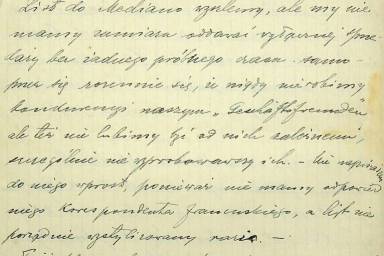 List do Mediano wysłemy, ale my nie
mamy zamiaru oddawać wyłącznej sprze-
daży bez żadnego próbnego czasu. Samo-
przez się rozumie się, że nigdy nie robimy
konkurencji naszym „Geschäftsfreunden"
ale też nie lubimy być od nich zależnemi,
szczególnie nie wypróbowawszy ich. – Nie napisaliśmy
do niego wprost, ponieważ nie mamy odpowied
niego korespondenta francuskiego, a list nie
porządnie wystylizowany razi. –